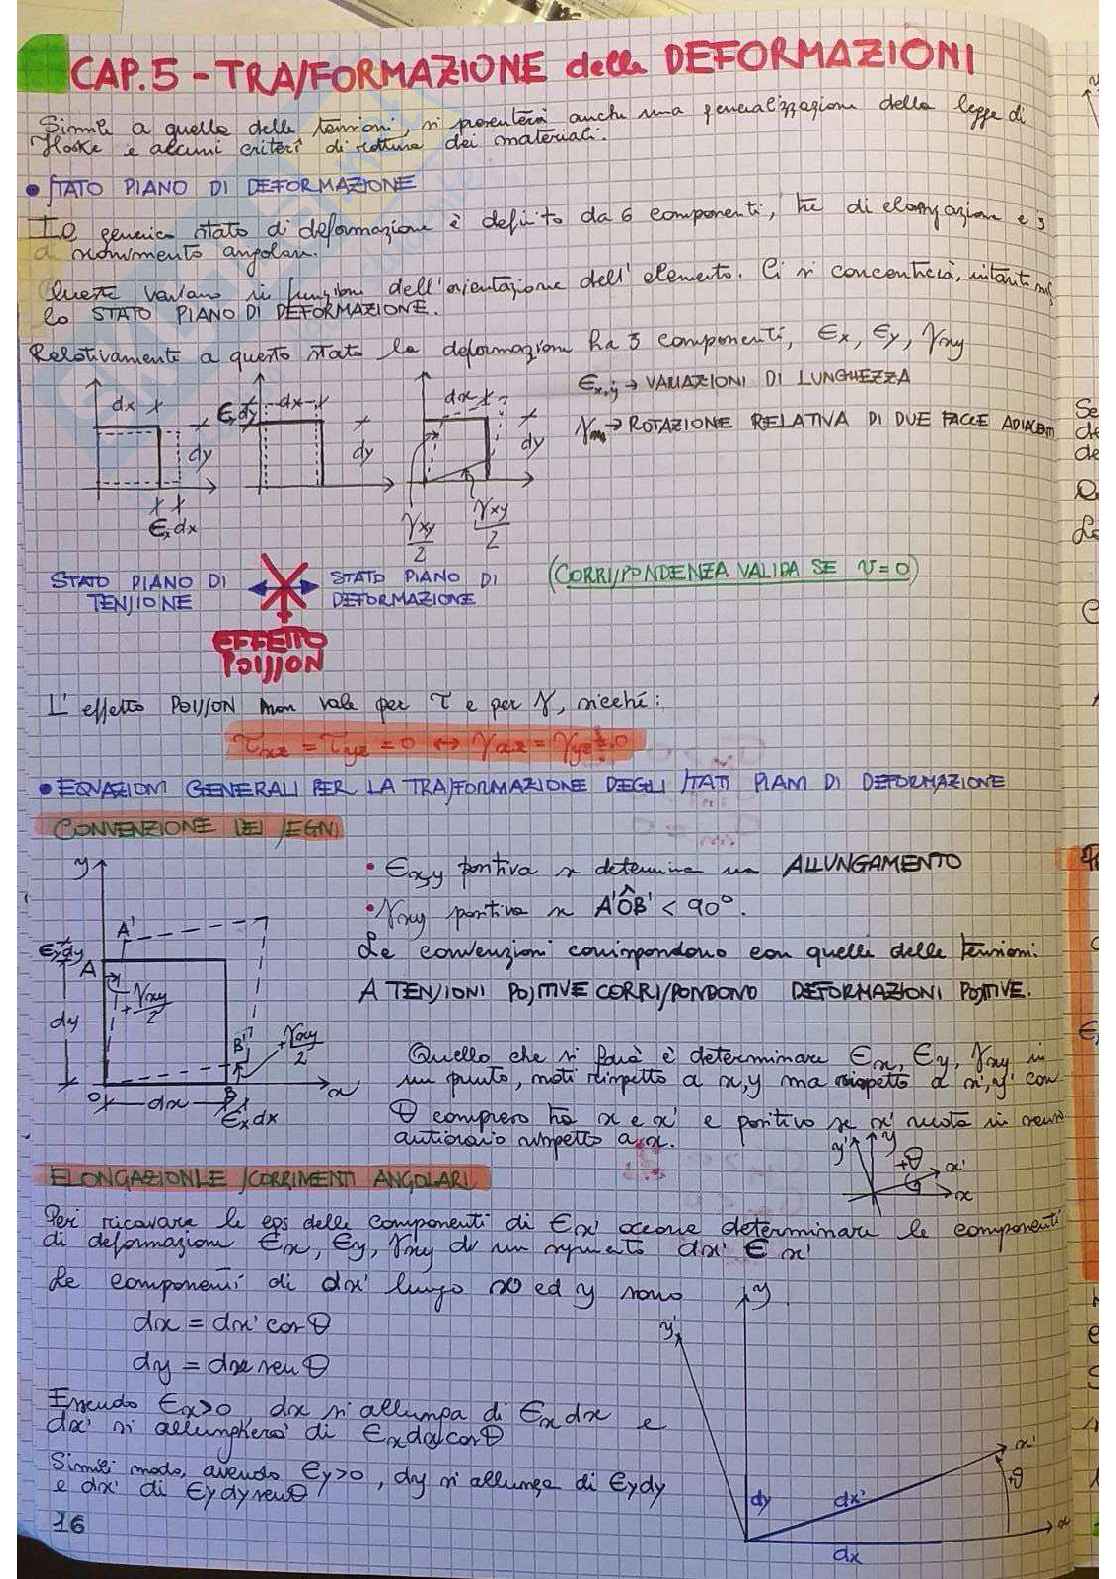 CAP.5 - TRASFORMAZIONE delle DEFORMAZIONI
Simile a quella delle tensioni, si presenterà anche una generalizzazione della legge di
Hooke e alcuni criteri di rottura dei materiali.
• STATO PIANO DI DEFORMAZIONE
Il generico stato di deformazione è definito da 6 componenti, tre di elongazione e 3
di scorrimento angolare.
Queste variano in funzione dell'orientazione dell'elemento. Ci si concentrerà, intanto, sul
lo STATO PIANO DI DEFORMAZIONE.
Relativamente a questo stato la deformazione ha 3 componenti, ϵx, ϵy, γxy
ϵx,y → VARIAZIONI DI LUNGHEZZA
γxy → ROTAZIONE RELATIVA DI DUE FACCE ADIACENTI
dx
dy
ϵx dx
ϵy dy
dx
dy
dx
dy
γxy/2
γxy/2
STATO PIANO DI
TENSIONE
STATO PIANO DI
DEFORMAZIONE
(CORRISPONDENZA VALIDA SE ν=0)
EFFETTO
POISSON
L'effetto POISSON non vale per τ e per γ, sicché:
τxz = τyz = 0 ↔ γxz = γyz = 0
• EQUAZIONI GENERALI PER LA TRASFORMAZIONE DEGLI STATI PIANI DI DEFORMAZIONE
CONVENZIONE DEI SEGNI
• ϵx,y positiva se determina un ALLUNGAMENTO
• γxy positiva se A'ÔB' < 90°.
Le convenzioni corrispondono con quelle delle tensioni:
A TENSIONI POSITIVE CORRISPONDONO DEFORMAZIONI POSITIVE.
y
A'
ϵy dy
A
+γxy/2
dy
B'
+γxy/2
O
dx
B
x
ϵx dx
Quello che si farà è determinare ϵx, ϵy, γxy in
un punto, noti rispetto a x,y ma rispetto a x',y' con
θ compreso tra x e x' e positivo se x' ruota in senso
antiorario rispetto a x.
y'
y
+θ
x'
x
ELONGAZIONI E SCORRIMENTI ANGOLARI
Per ricavare le eqs delle componenti di ϵx' occorre determinare le componenti
di deformazione ϵx, ϵy, γxy di un segmento dx' ∈ x'
Le componenti di dx' lungo x ed y sono
dx = dx' cosθ
dy = dx senθ
Essendo ϵx>0 dx si allunga di ϵx dx e
dx' si allungherà di ϵx dx cosθ
Simili modo, avendo ϵy>0, dy si allunga di ϵy dy
e dx' di ϵy dy senθ
y
y'
x'
+θ
dy
dx'
x
dx
16